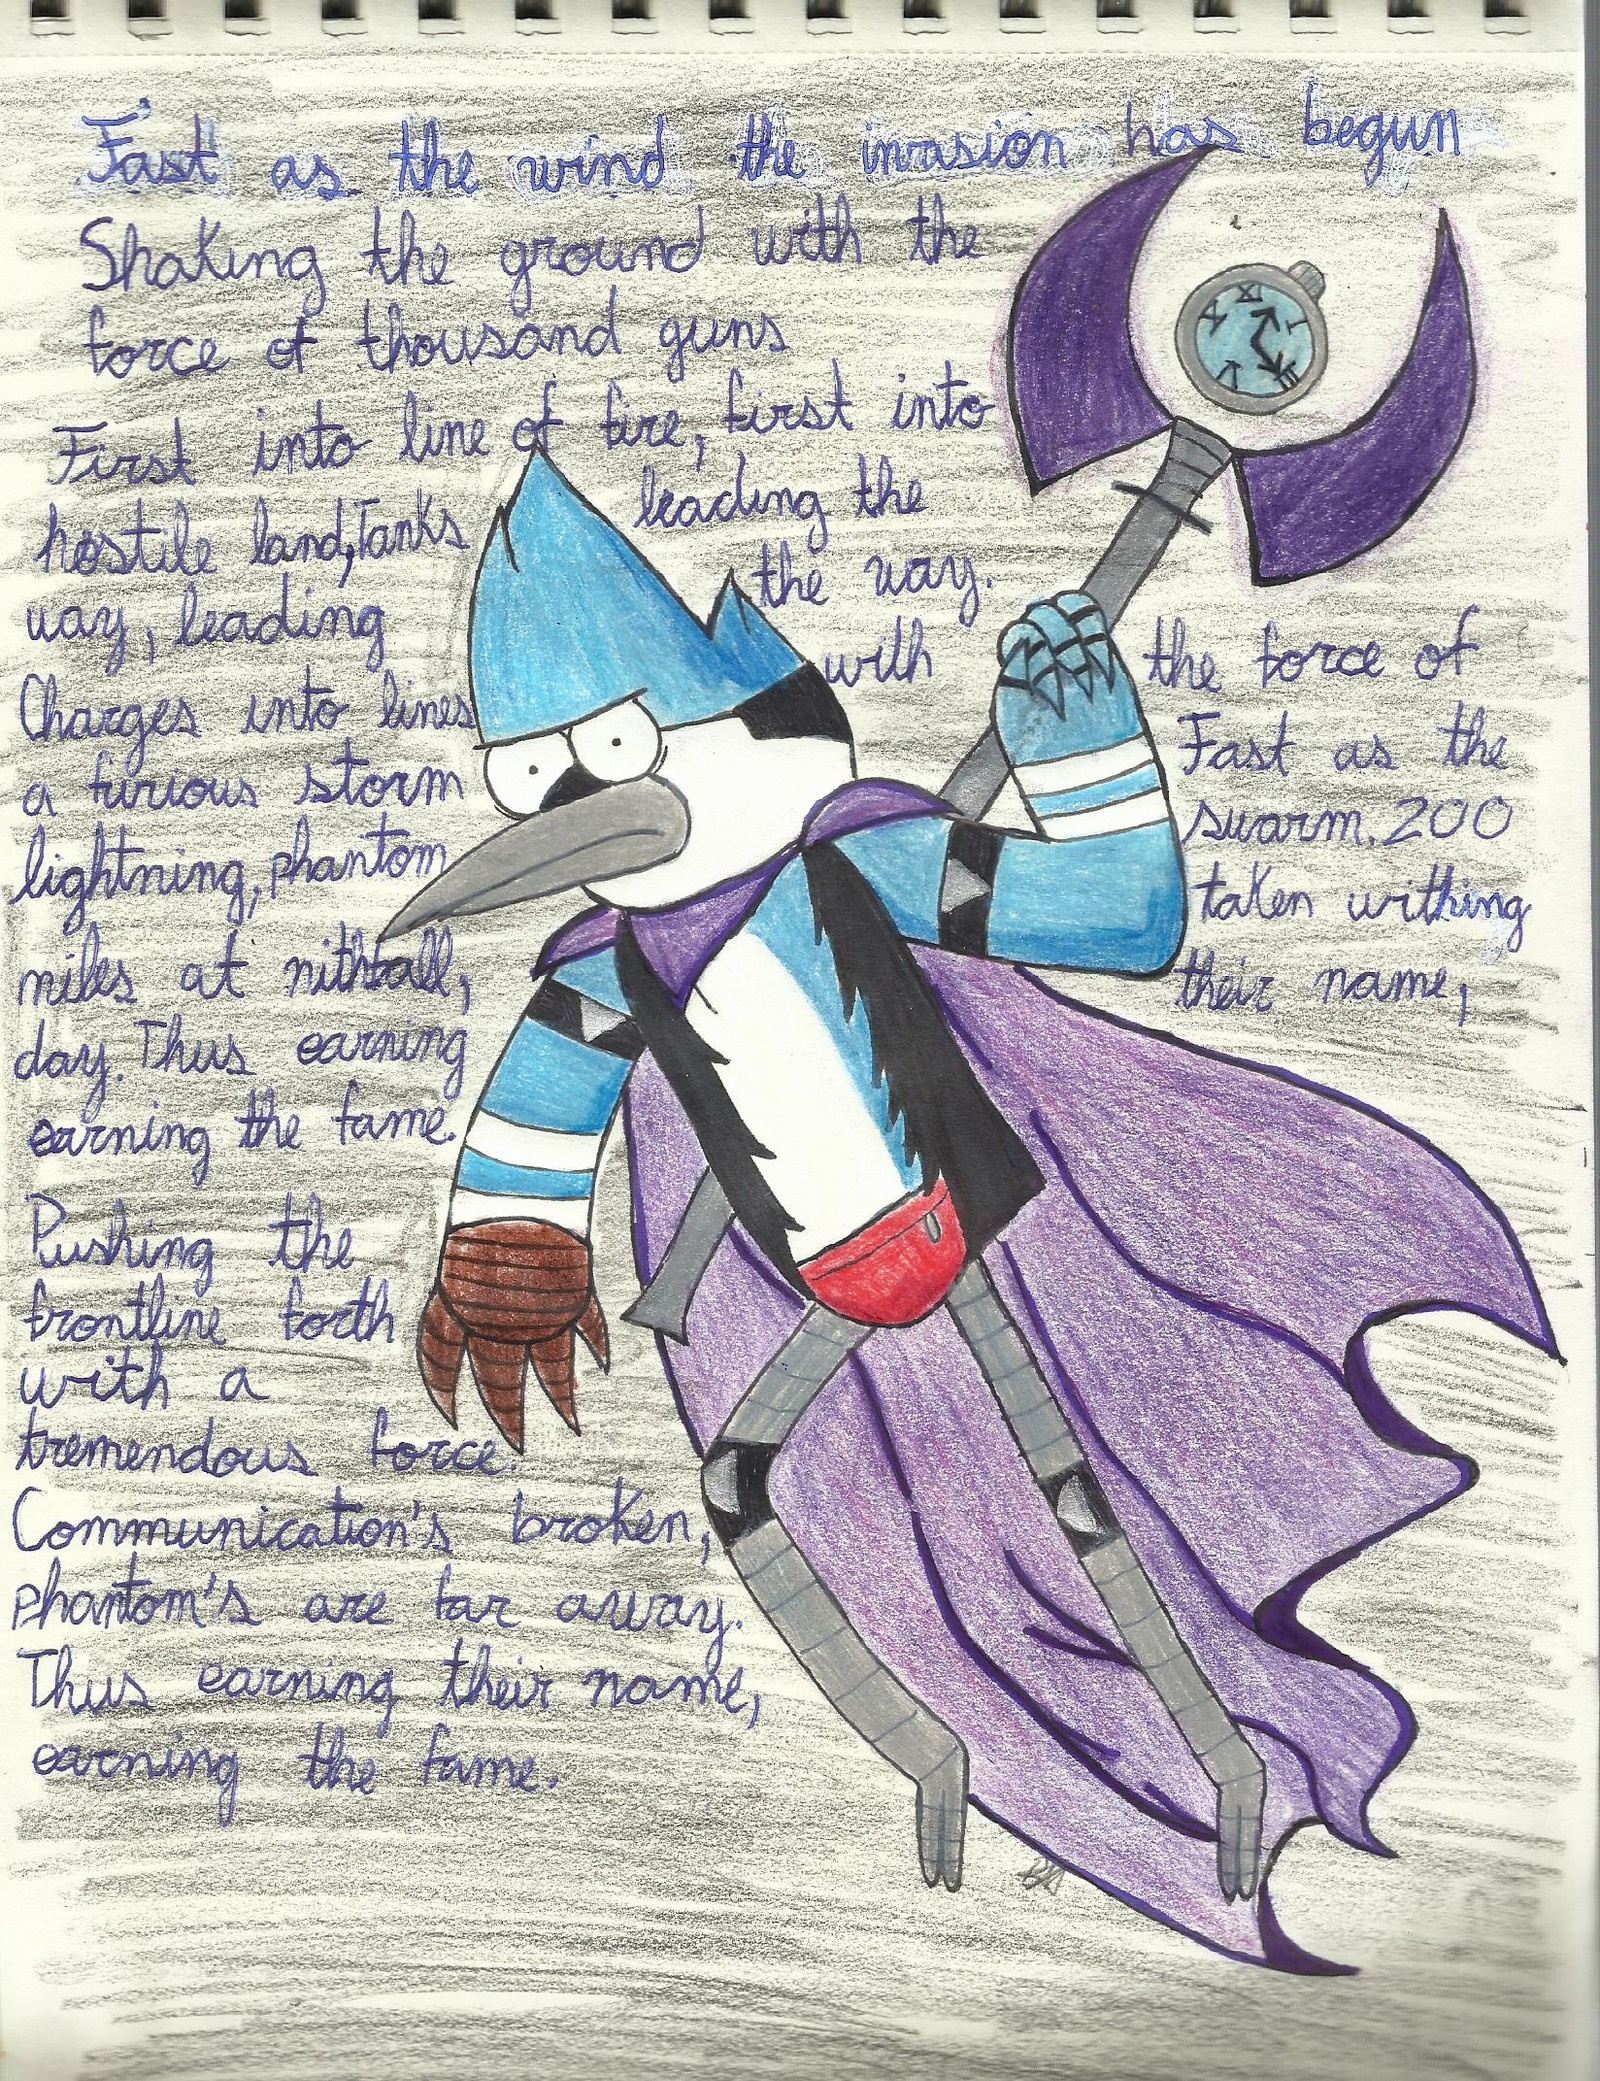 Fast as the wind the invasion has begun
Shaking the ground with the
force of thousand guns
First into line of fire, first into
hostile land, Tanks leading the
way, leading the way.
Charges into lines with the force of
a furious storm Fast as the
lightning, phantom swarm. 200
miles at nithfall, taken withing
day. Thus earning their name,
earning the fame.
Pushing the
frontline forth
with a
tremendous force.
Communication's broken,
phantom's are far away.
Thus earning their name,
earning the fame.